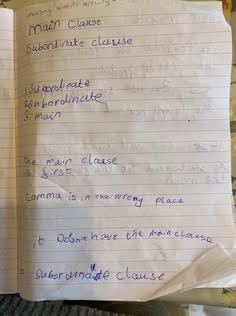 missing words activity
Main Clause
Subordinate clause
1 Subordinate
2 subordinate
3. main
the main clause
is first
comma is in the wrong place
it Doesnt have the main clause
Subordinate clause